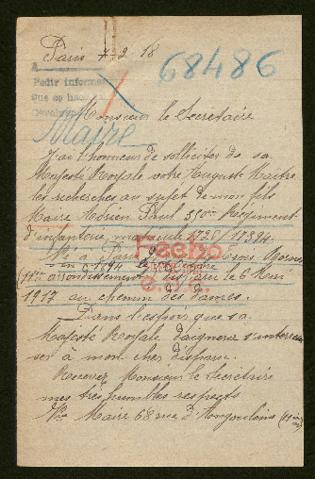 Paris 7-2-18
68486
Pedir informes
Que se haga
Monsieur le Secrétaire
Maire
J'ai l'honneur de solliciter de sa
Majesté Royale votre Auguste Maitre
les recherches au sujet de mon fils
Maire Adrien Paul Regiment
d'infanterie, matricule
Hecho
Né à Paris
arrondissement disparu le 6 Mai
1917 au chemin des dames.
Dans l'espoir que sa
Majesté Royale daignera s'interes
ser à mon cher disparu.
Recevez Monsieur le Secrétaire
mes très humbles respects
Maire 68 rue d'